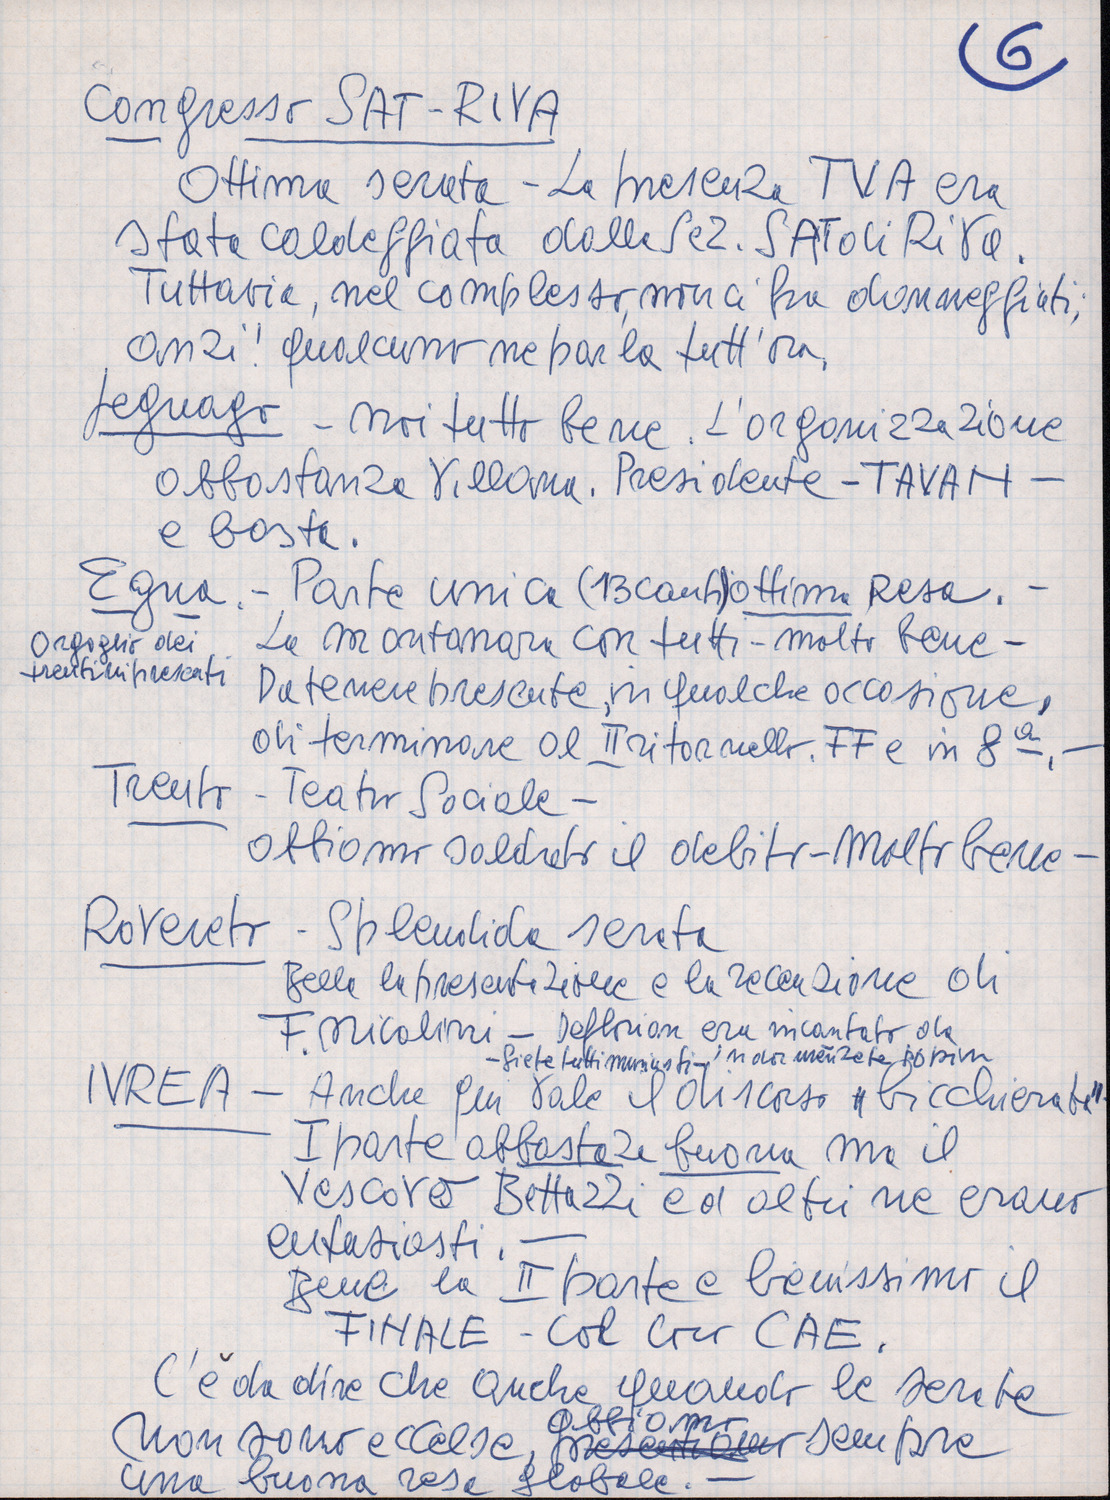 6
Congresso SAT - RIVA
Ottima serata - La presenza TVA era
stata caldeggiata dalla Sez. SAT di Riva.
Tuttavia, nel complesso, non ci ha danneggiati;
anzi! qualcuno ne parla tutt'ora.
Legnago - noi tutto bene. L'organizzazione
abbastanza villana. Presidente - TAVAN -
e basta.
Egna. - Parte unica (13 canti) ottima resa. -
Orgoglio dei
trentini presenti
La montanara con tutti - molto bene -
Da tenere presente, in qualche occasione,
di terminare al II ritornello. FF e in 8a. -
Trento - Teatro Sociale -
abbiamo saldato il debito - Molto bene -
Rovereto - Splendida serata
Bella la presentazione e la recenzione di
F. Nicolini - Deflorian era incantato da
- Siete tutti musicisti -
IVREA - Anche qui vale il discorso "bicchierata" -
I parte abbastaza buona ma il
Vescovo Bettazzi ed altri ne erano
entusiasti. -
Bene la II parte e benissimo il
FINALE - Col Coro CAE.
C'è da dire che anche quando le serate
non sono eccelse, abbiamo sempre
una buona resa globale. -